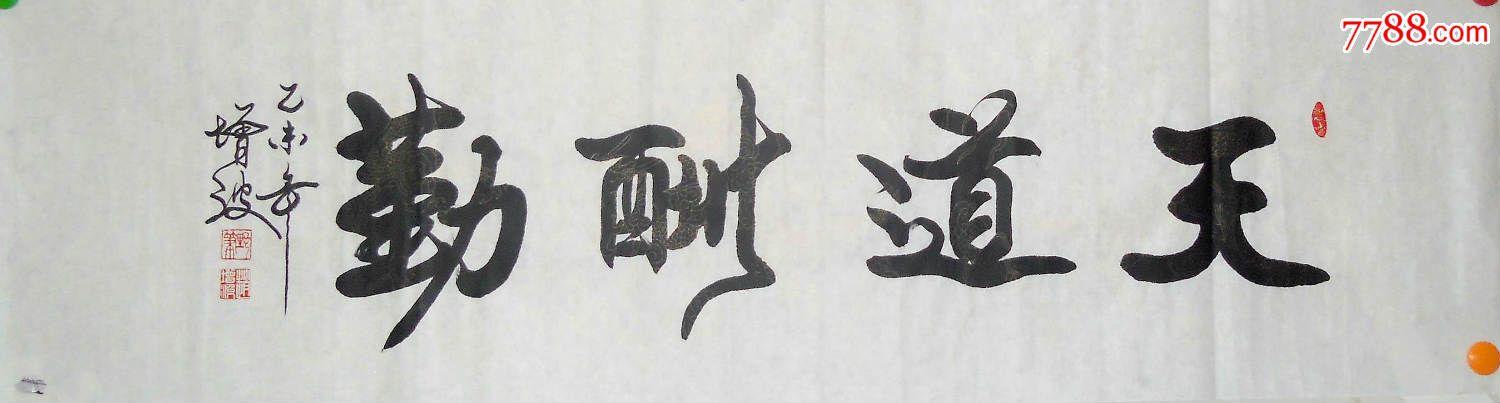 天道酬勤
乙未年
增波
7788.com